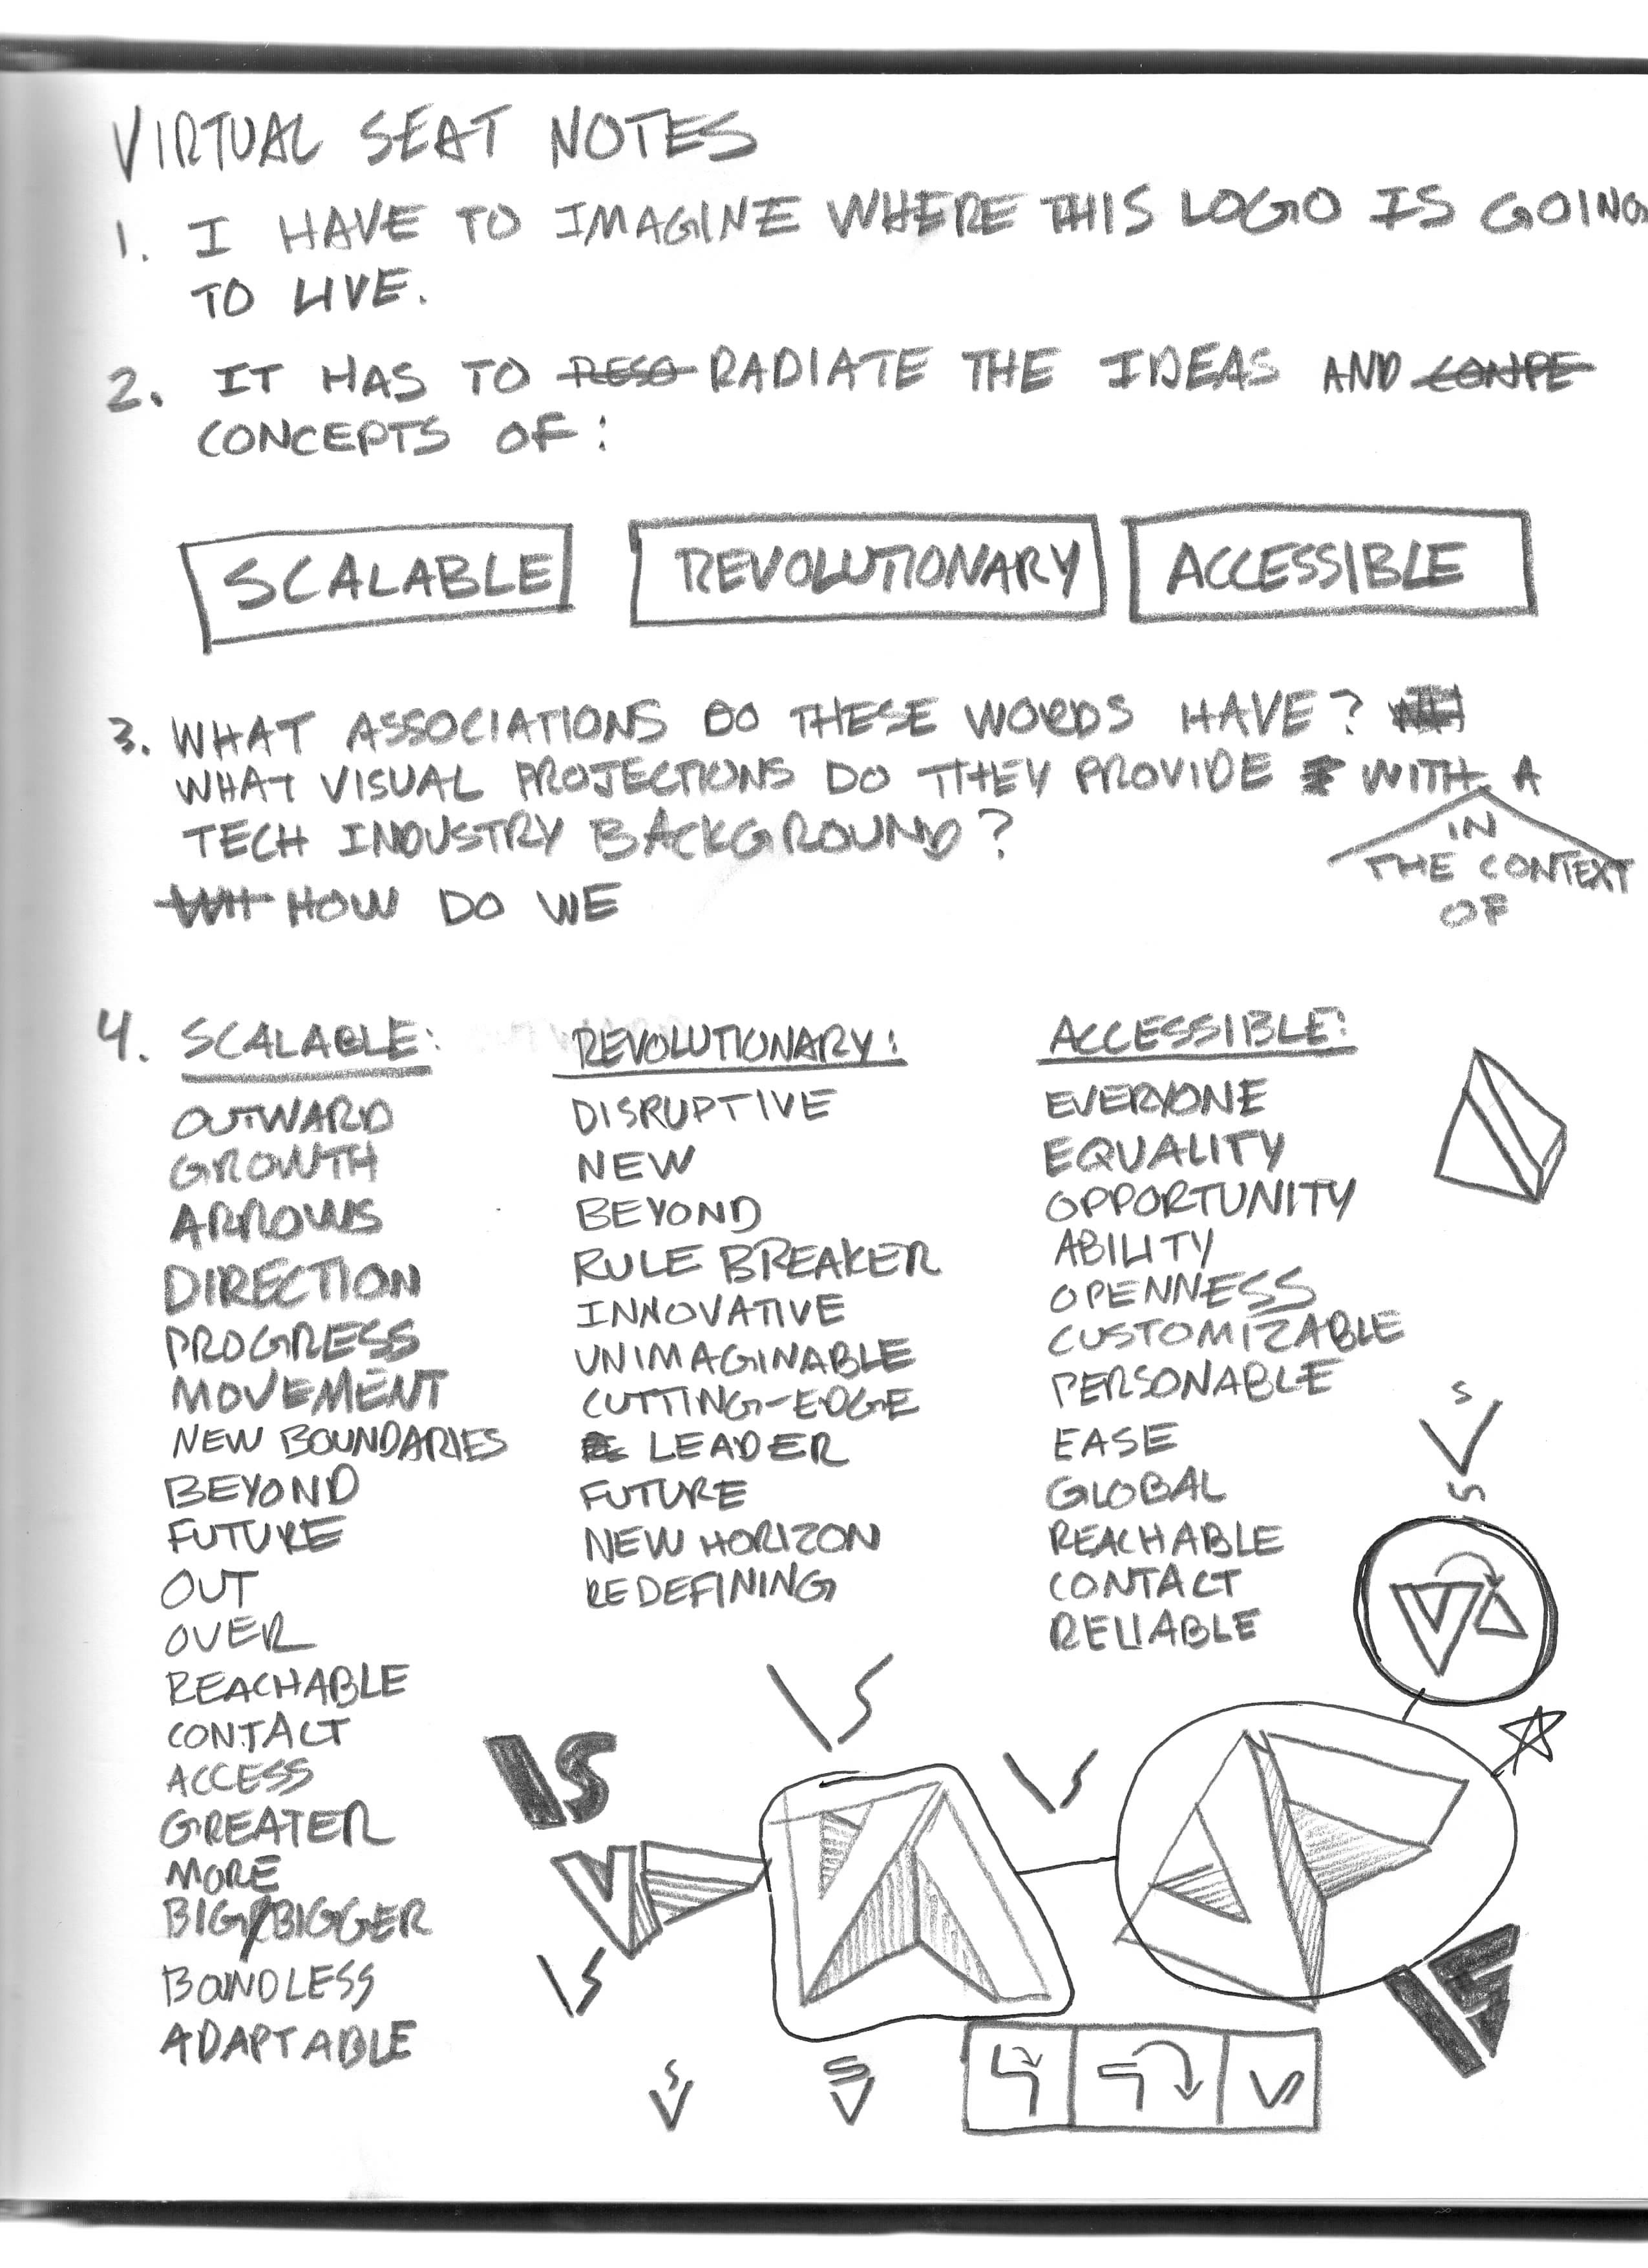 VIRTUAL SEAT NOTES
1. I HAVE TO IMAGINE WHERE THIS LOGO IS GOING
TO LIVE.
2. IT HAS TO RESO RADIATE THE IDEAS AND CONPE
CONCEPTS OF:
SCALABLE REVOLUTIONARY ACCESSIBLE
3. WHAT ASSOCIATIONS DO THESE WORDS HAVE?
WHAT VISUAL PROJECTIONS DO THEY PROVIDE WITH A
TECH INDUSTRY BACKGROUND?
IN
THE CONTEXT
OF
WH HOW DO WE
4. SCALABLE:
OUTWARD
GROWTH
ARROWS
DIRECTION
PROGRESS
MOVEMENT
NEW BOUNDARIES
BEYOND
FUTURE
OUT
OVER
REACHABLE
CONTACT
ACCESS
GREATER
MORE
BIG/BIGGER
BOUNDLESS
ADAPTABLE
REVOLUTIONARY:
DISRUPTIVE
NEW
BEYOND
RULE BREAKER
INNOVATIVE
UNIMAGINABLE
CUTTING-EDGE
LEADER
FUTURE
NEW HORIZON
REDEFINING
ACCESSIBLE:
EVERYONE
EQUALITY
OPPORTUNITY
ABILITY
OPENNESS
CUSTOMIZABLE
PERSONABLE
EASE
GLOBAL
REACHABLE
CONTACT
RELIABLE
S
V
S
VS
VS
VS
V
VS
S
V
S
V
VS